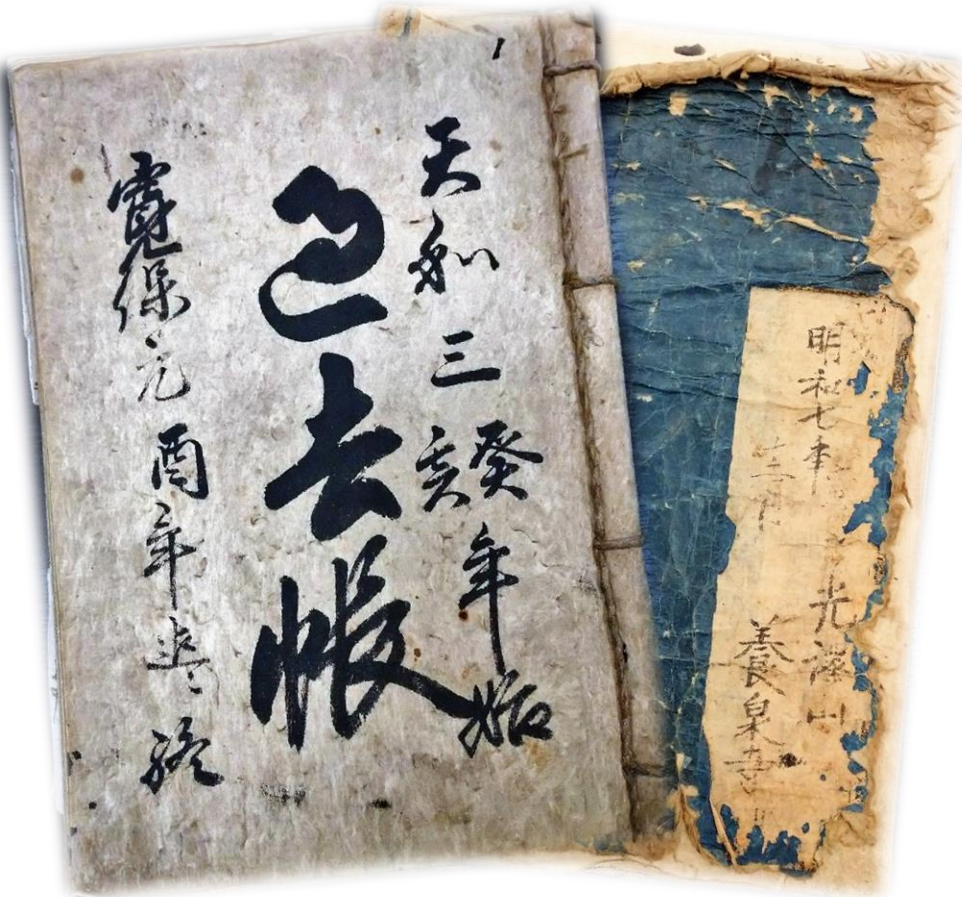 天和三癸亥年始
過去帳
寛保元酉年迄終
明和七年
十二月
光山
養泉寺